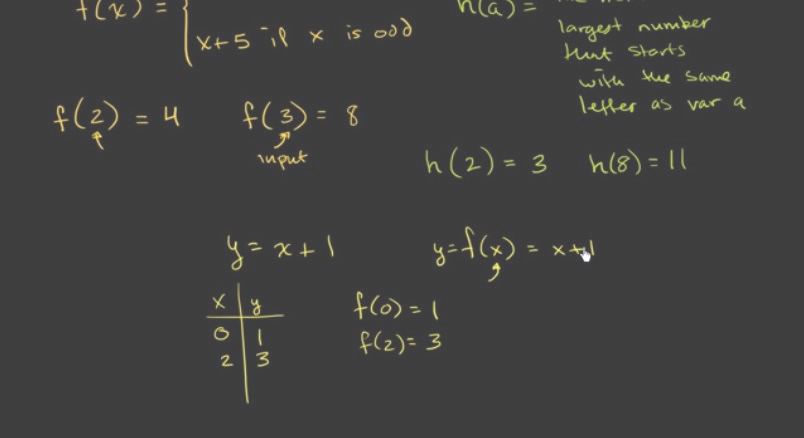 f(x) = {
x+5 if x is odd
h(a) =
largest number
that starts
with the same
letter as var a
f(2) = 4    f(3) = 8
input
h(2) = 3    h(8) = 11
y = x + 1    y = f(x) = x+1
x | y
0 | 1
2 | 3
f(0) = 1
f(2) = 3